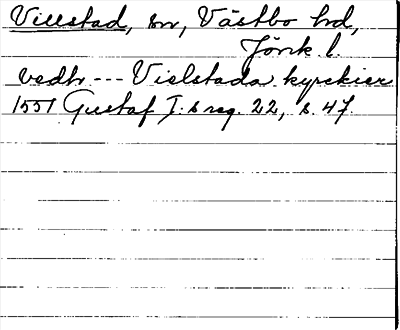 Villstad, sn, Västbo hd,
Jönk l.
vedtr --- Vislstada kyrckier
1551 Gustaf I:s reg. 22, s. 47.